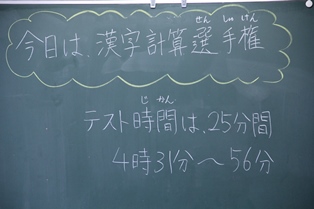 今日は、漢字計算選手権
せんしゅけん
テスト時間は、25分間
じかん
4時31分～56分